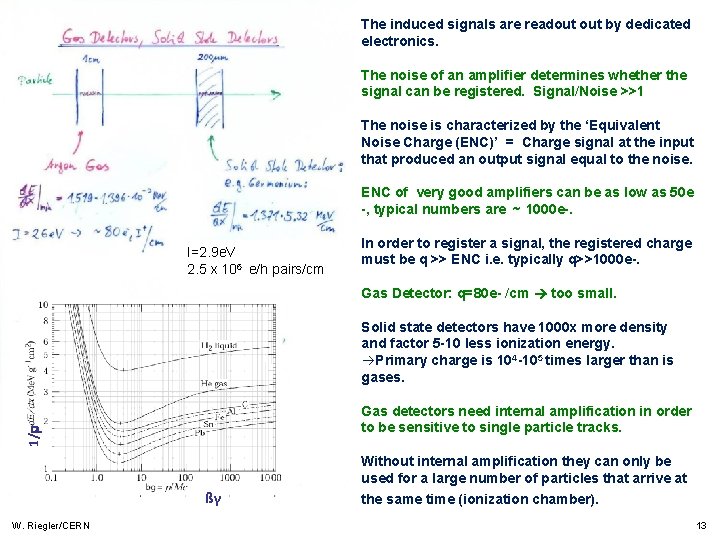 Gas Detectors, Solid State Detectors
1cm
200µm
Particle
Argon Gas
Solid State Detector:
e.g. Germanium:
dE/dx|min = 1.519·1.396·10-3 MeV/cm
dE/dx| = 1.371·5.32 MeV/cm
I=26eV → ~ 80e,I+/cm
I=2.9eV
2.5 x 106 e/h pairs/cm
The induced signals are readout out by dedicated
electronics.
The noise of an amplifier determines whether the
signal can be registered. Signal/Noise >>1
The noise is characterized by the ‘Equivalent
Noise Charge (ENC)’ = Charge signal at the input
that produced an output signal equal to the noise.
ENC of very good amplifiers can be as low as 50e
-, typical numbers are ~ 1000e-.
In order to register a signal, the registered charge
must be q >> ENC i.e. typically q>>1000e-.
Gas Detector: q=80e- /cm → too small.
Solid state detectors have 1000x more density
and factor 5-10 less ionization energy.
→Primary charge is 104-105 times larger than is
gases.
Gas detectors need internal amplification in order
to be sensitive to single particle tracks.
Without internal amplification they can only be
used for a large number of particles that arrive at
the same time (ionization chamber).
1/ρ
dE/dx (MeV g-1cm2)
10
8
6
5
4
3
2
1
H2 liquid
He gas
C
Al
Fe
Sn
Pb
0.1
1.0
10
100
1000
10000
bg = p/Mc
ßγ
W. Riegler/CERN
13